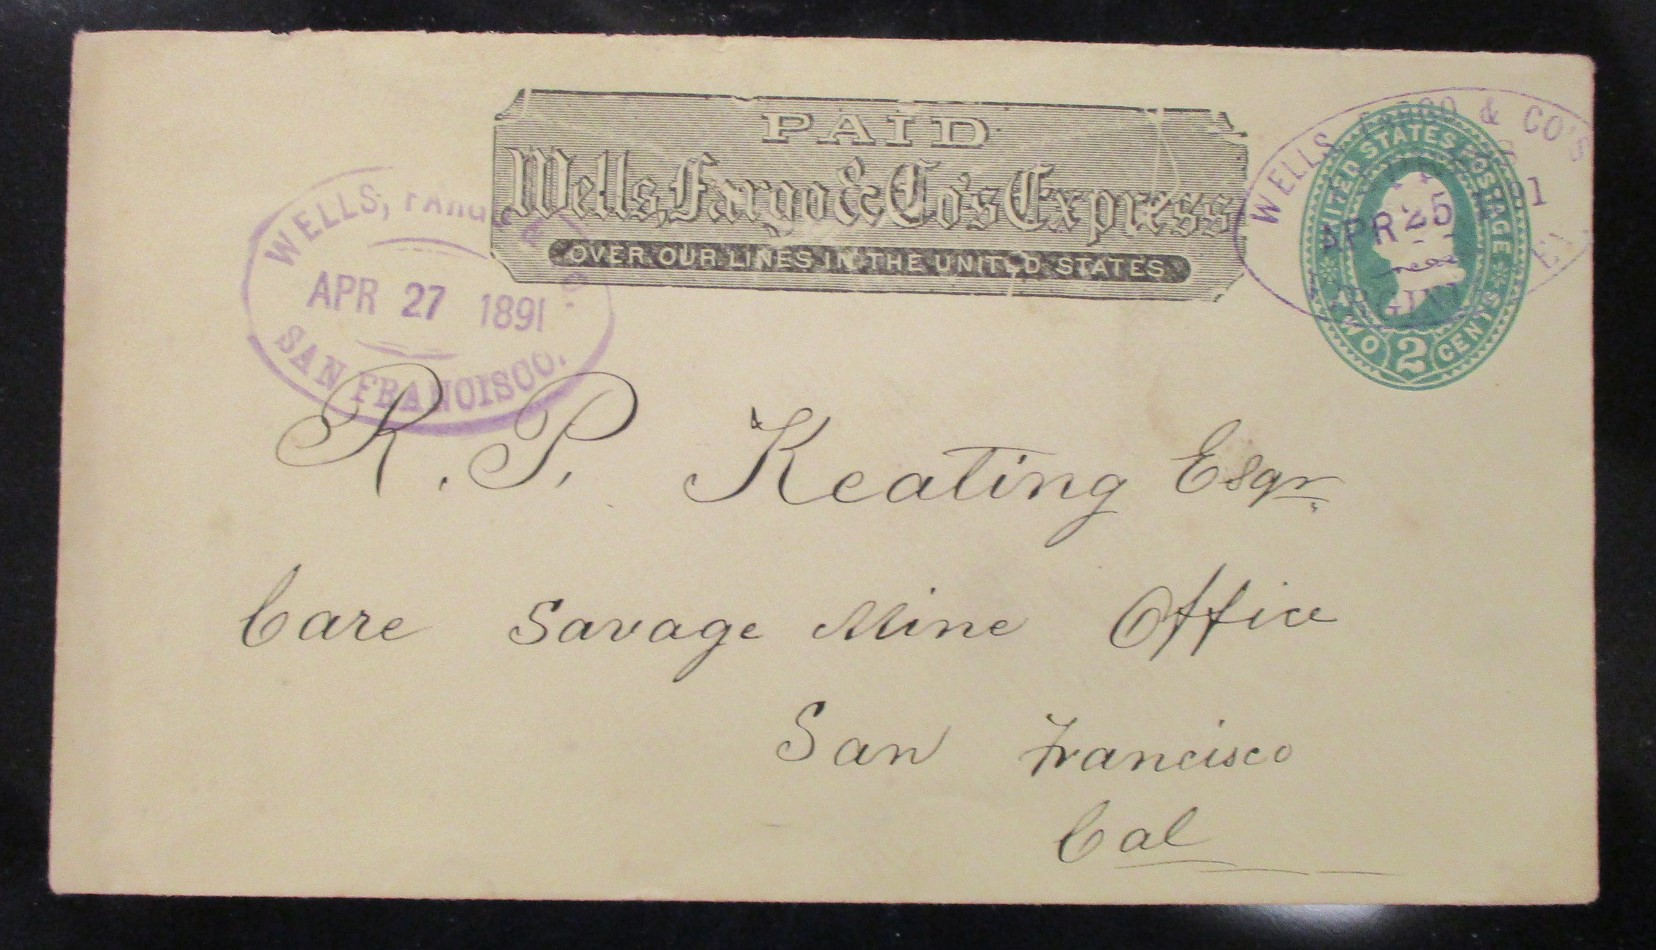 PAID
Wells, Fargo & Co's Express
OVER OUR LINES IN THE UNITED STATES
WELLS, FARGO & CO'S
APR 25
UNITED STATES POSTAGE
TWO 2 CENTS
WELLS, FARGO &
APR 27 1891
SAN FRANCISCO.
R. P. Keating Esqr
Care Savage Mine Office
San Francisco
Cal